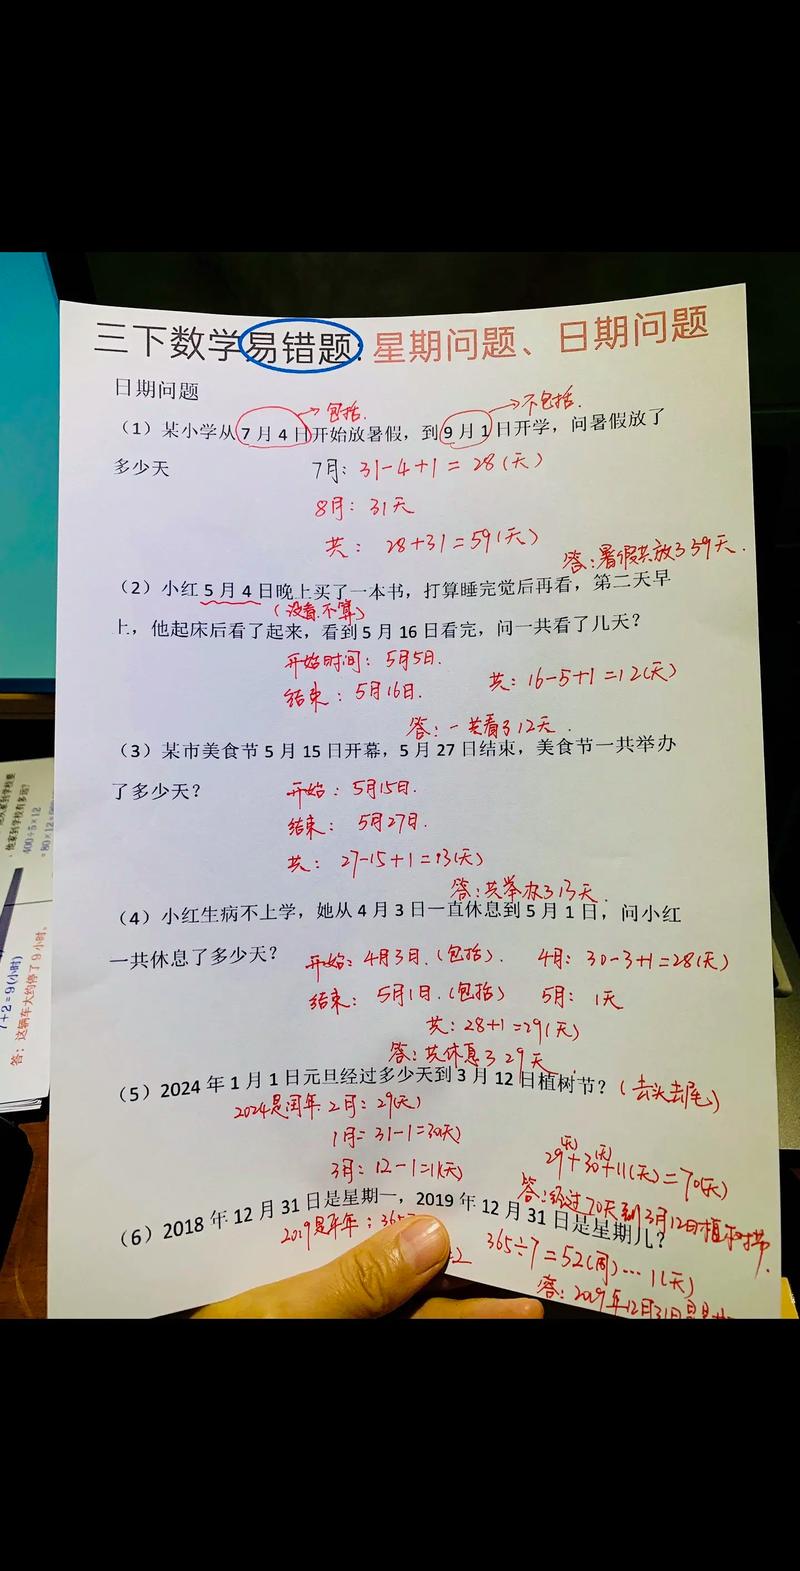 三下数学易错题:星期问题、日期问题
日期问题
→包括. →不包括.
(1)某小学从7月4日开始放暑假，到9月1日开学，问暑假放了
多少天
7月: 31-4+1=28(天)
8月: 31天
共: 28+31=59(天)
答:暑假共放了59天.
(2)小红5月4日晚上买了一本书，打算睡完觉后再看，第二天早
(没看.不算)
上，他起床后看了起来，看到5月16日看完，问一共看了几天?
开始时间: 5月5日.
结束: 5月16日.
共: 16-5+1=12(天)
答: 一共看了12天.
(3)某市美食节5月15日开幕，5月27日结束，美食节一共举办
了多少天?
开始: 5月15日.
结束: 5月27日.
共: 27-15+1=13(天)
答:共举办了13天.
(4)小红生病不上学，她从4月3日一直休息到5月1日，问小红
一共休息了多少天?
开始:4月3日.(包括). 4月: 30-3+1=28(天)
结束: 5月1日.(包括) 5月: 1天
共: 28+1=29(天)
答:共休息了29天.
(5)2024年1月1日元旦经过多少天到3月12日植树节?(去头去尾)
2024是闰年.2月: 29(天)
1月: 31-1=30(天)
3月: 12-1=11(天)
29(天)+30(天)+11(天)=70(天)
答:经过70天到3月12日植树节.
(6)2018年12月31日是星期一，2019年12月31日是星期几?
2019是平年: 365
365÷7=52(周)…1(天)
答: 2019年12月31日是星
他家到学校有多远?
400÷5×12
7+2=9(小时)
答:这辆车大约停了9小时。